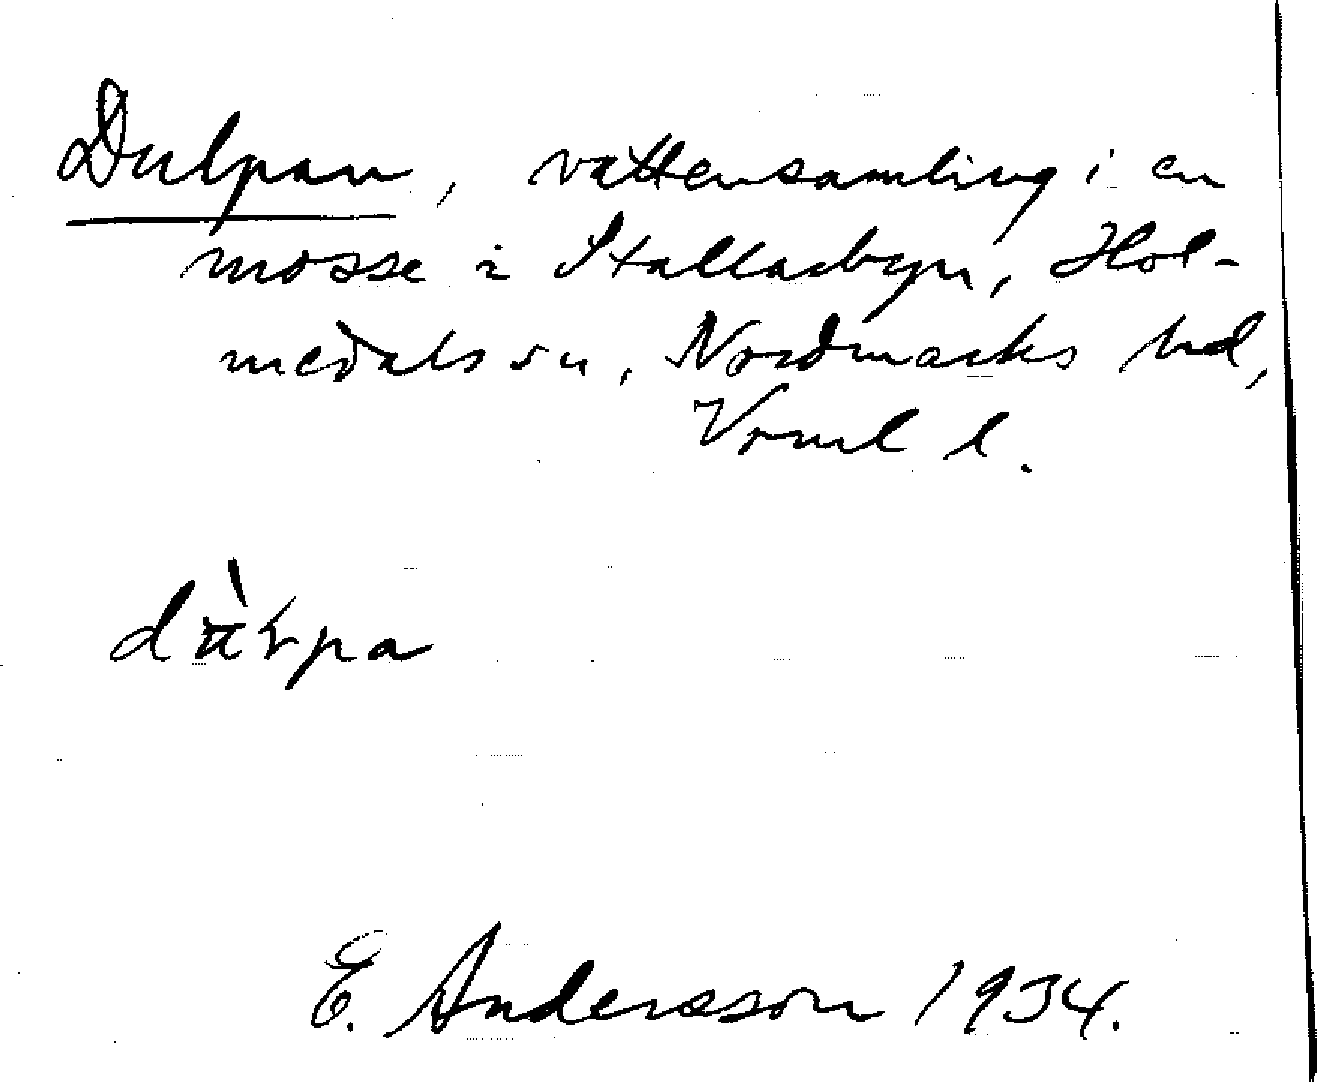 Dulpan, vattensamling i en
mosse i Stallarbyn, Hol-
medals sn, Nordmarks hd,
Vrml l.
E. Andersson 1934.